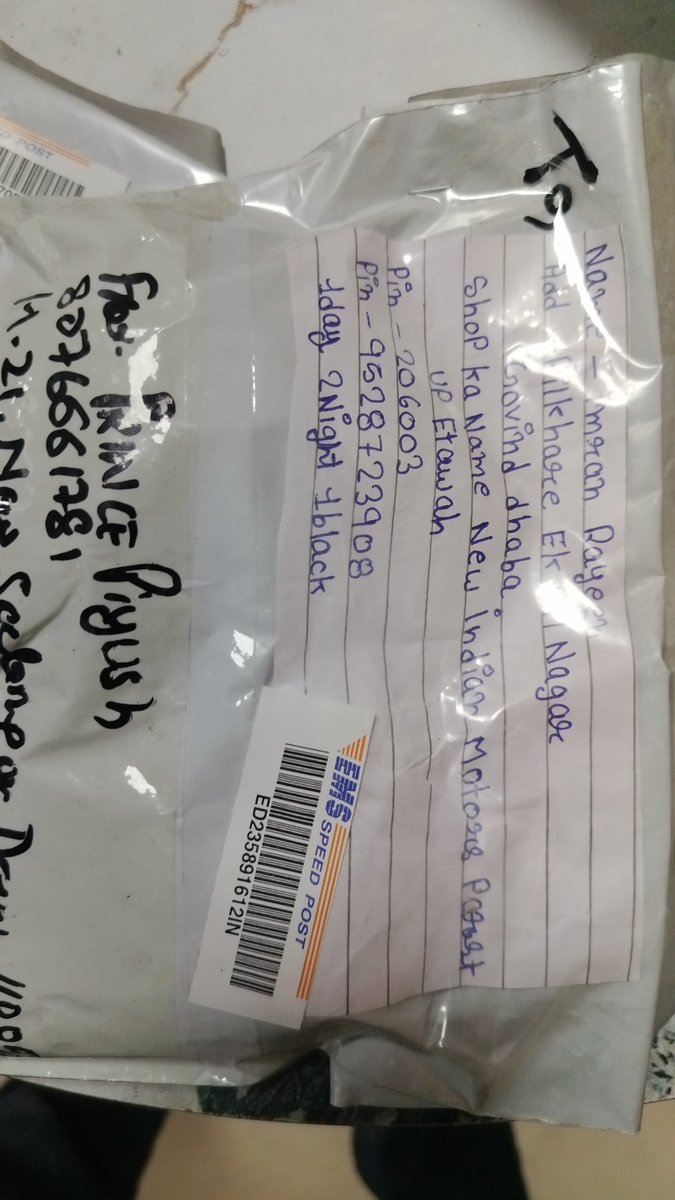 To,
Name - Imran Rayeen
Add Pilkhare Ek Nagar
Govind dhaba
Shop ka Name New Indian Motors Parust
UP Etawah
Pin - 206003
Pin - 9528723908
1day 2Night 1black
EMS SPEED POST
ED235891612IN
From. PRINCE Piyush
8076661781
H. 21. New
ED POST